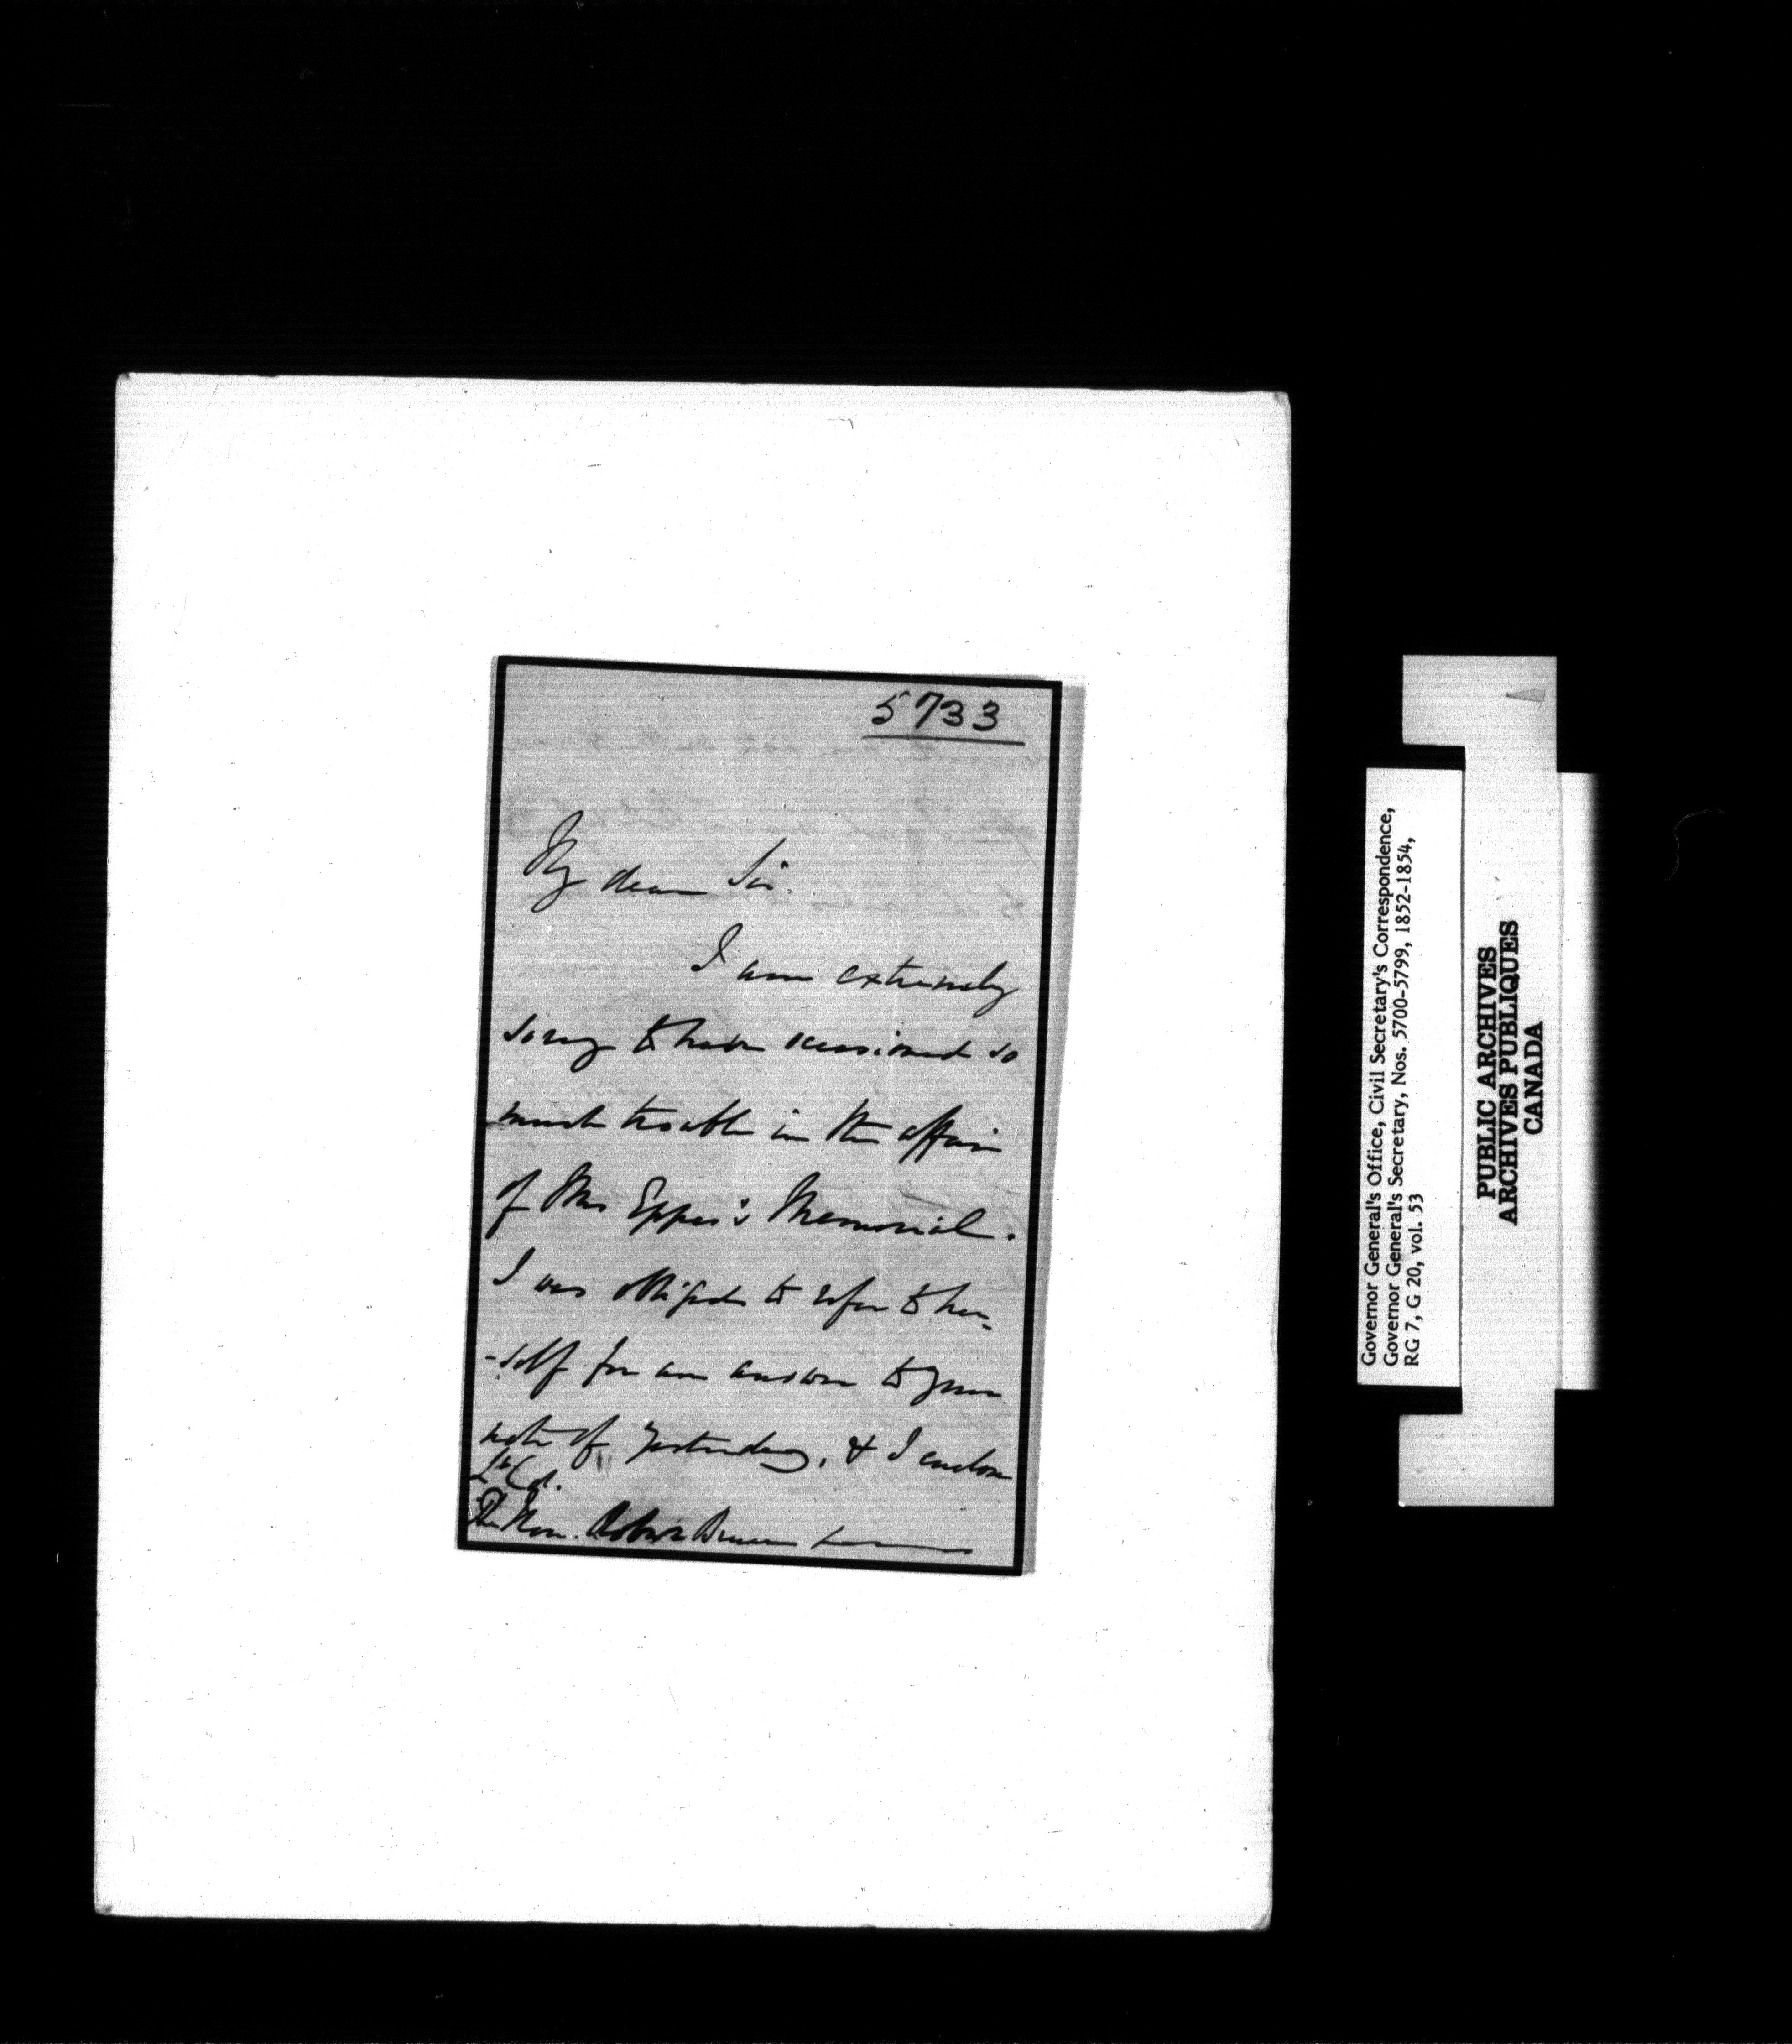 5733
My dear Sir.
I am extremely
sorry to have occasioned so
much trouble in the affair
of Mrs Eppes's Memorial.
I was obliged to refer to her-
-self for an answer to your
note of yesterday, & I enclose
Lt Col.
The Hon. Robert Bruce
Governor General's Office, Civil Secretary's Correspondence,
Governor General's Secretary, Nos. 5700-5799, 1852-1854,
RG 7, G 20, vol. 53
PUBLIC ARCHIVES
ARCHIVES PUBLIQUES
CANADA